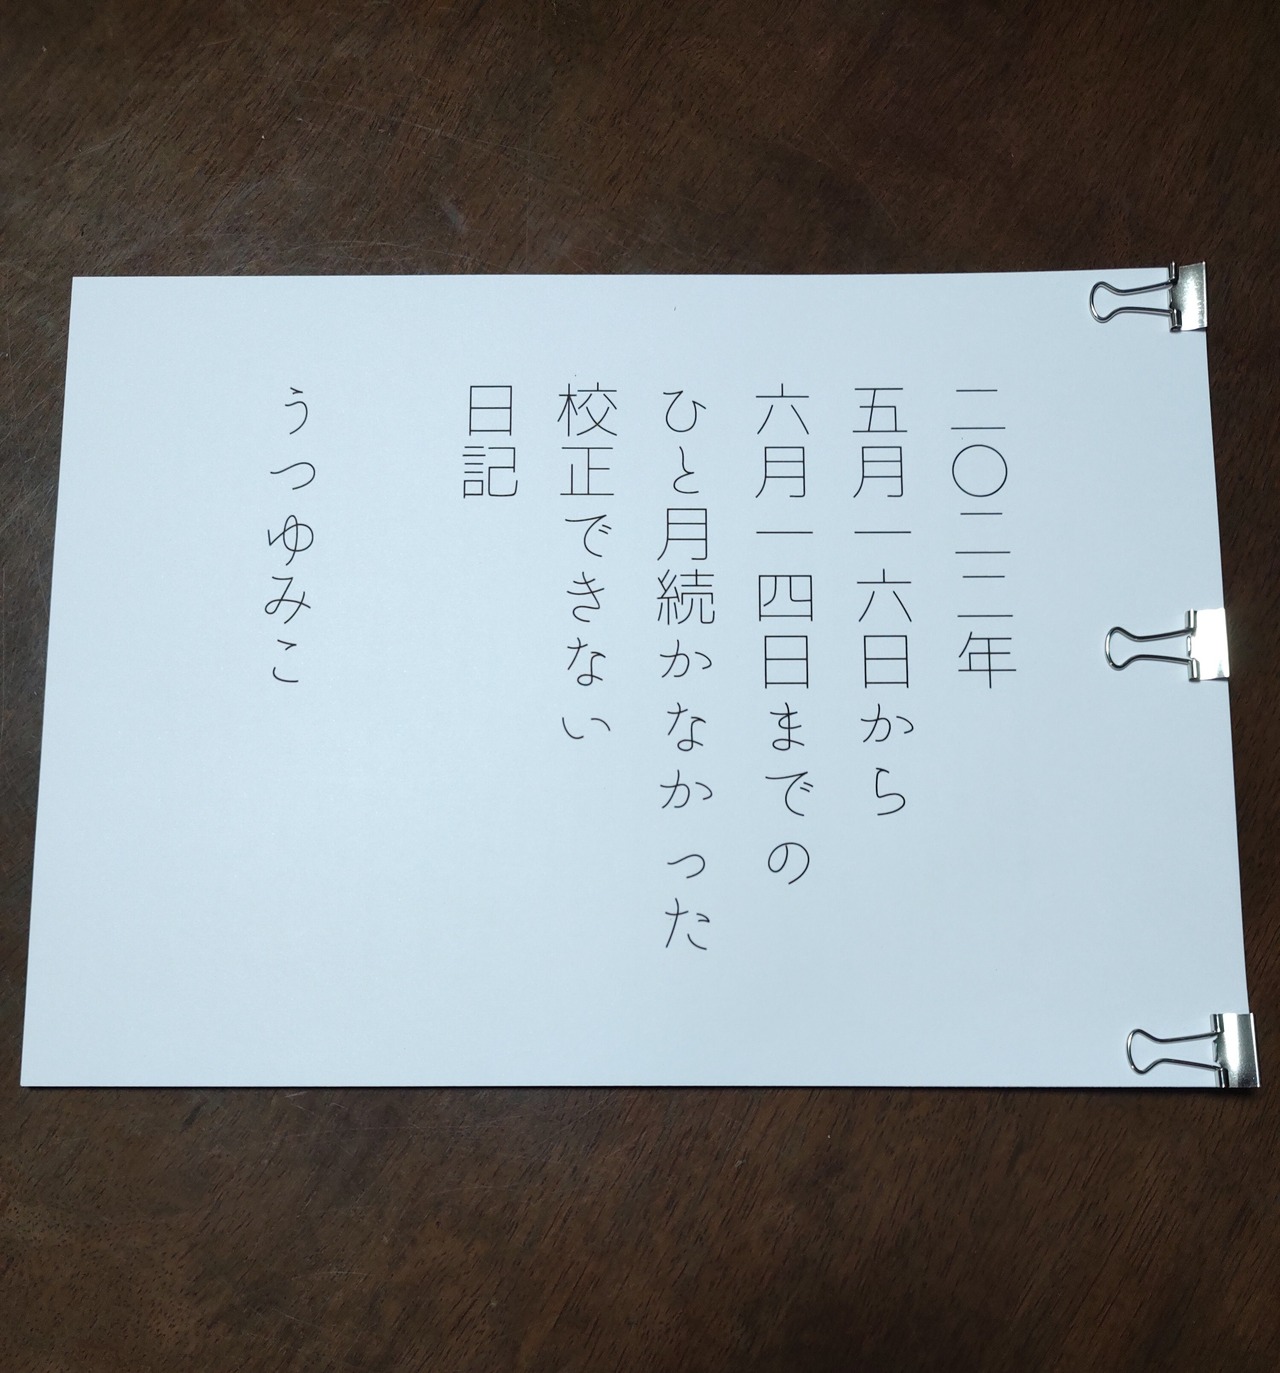 二〇二二年
五月一六日から
六月一四日までの
ひと月続かなかった
校正できない
日記
うつゆみこ